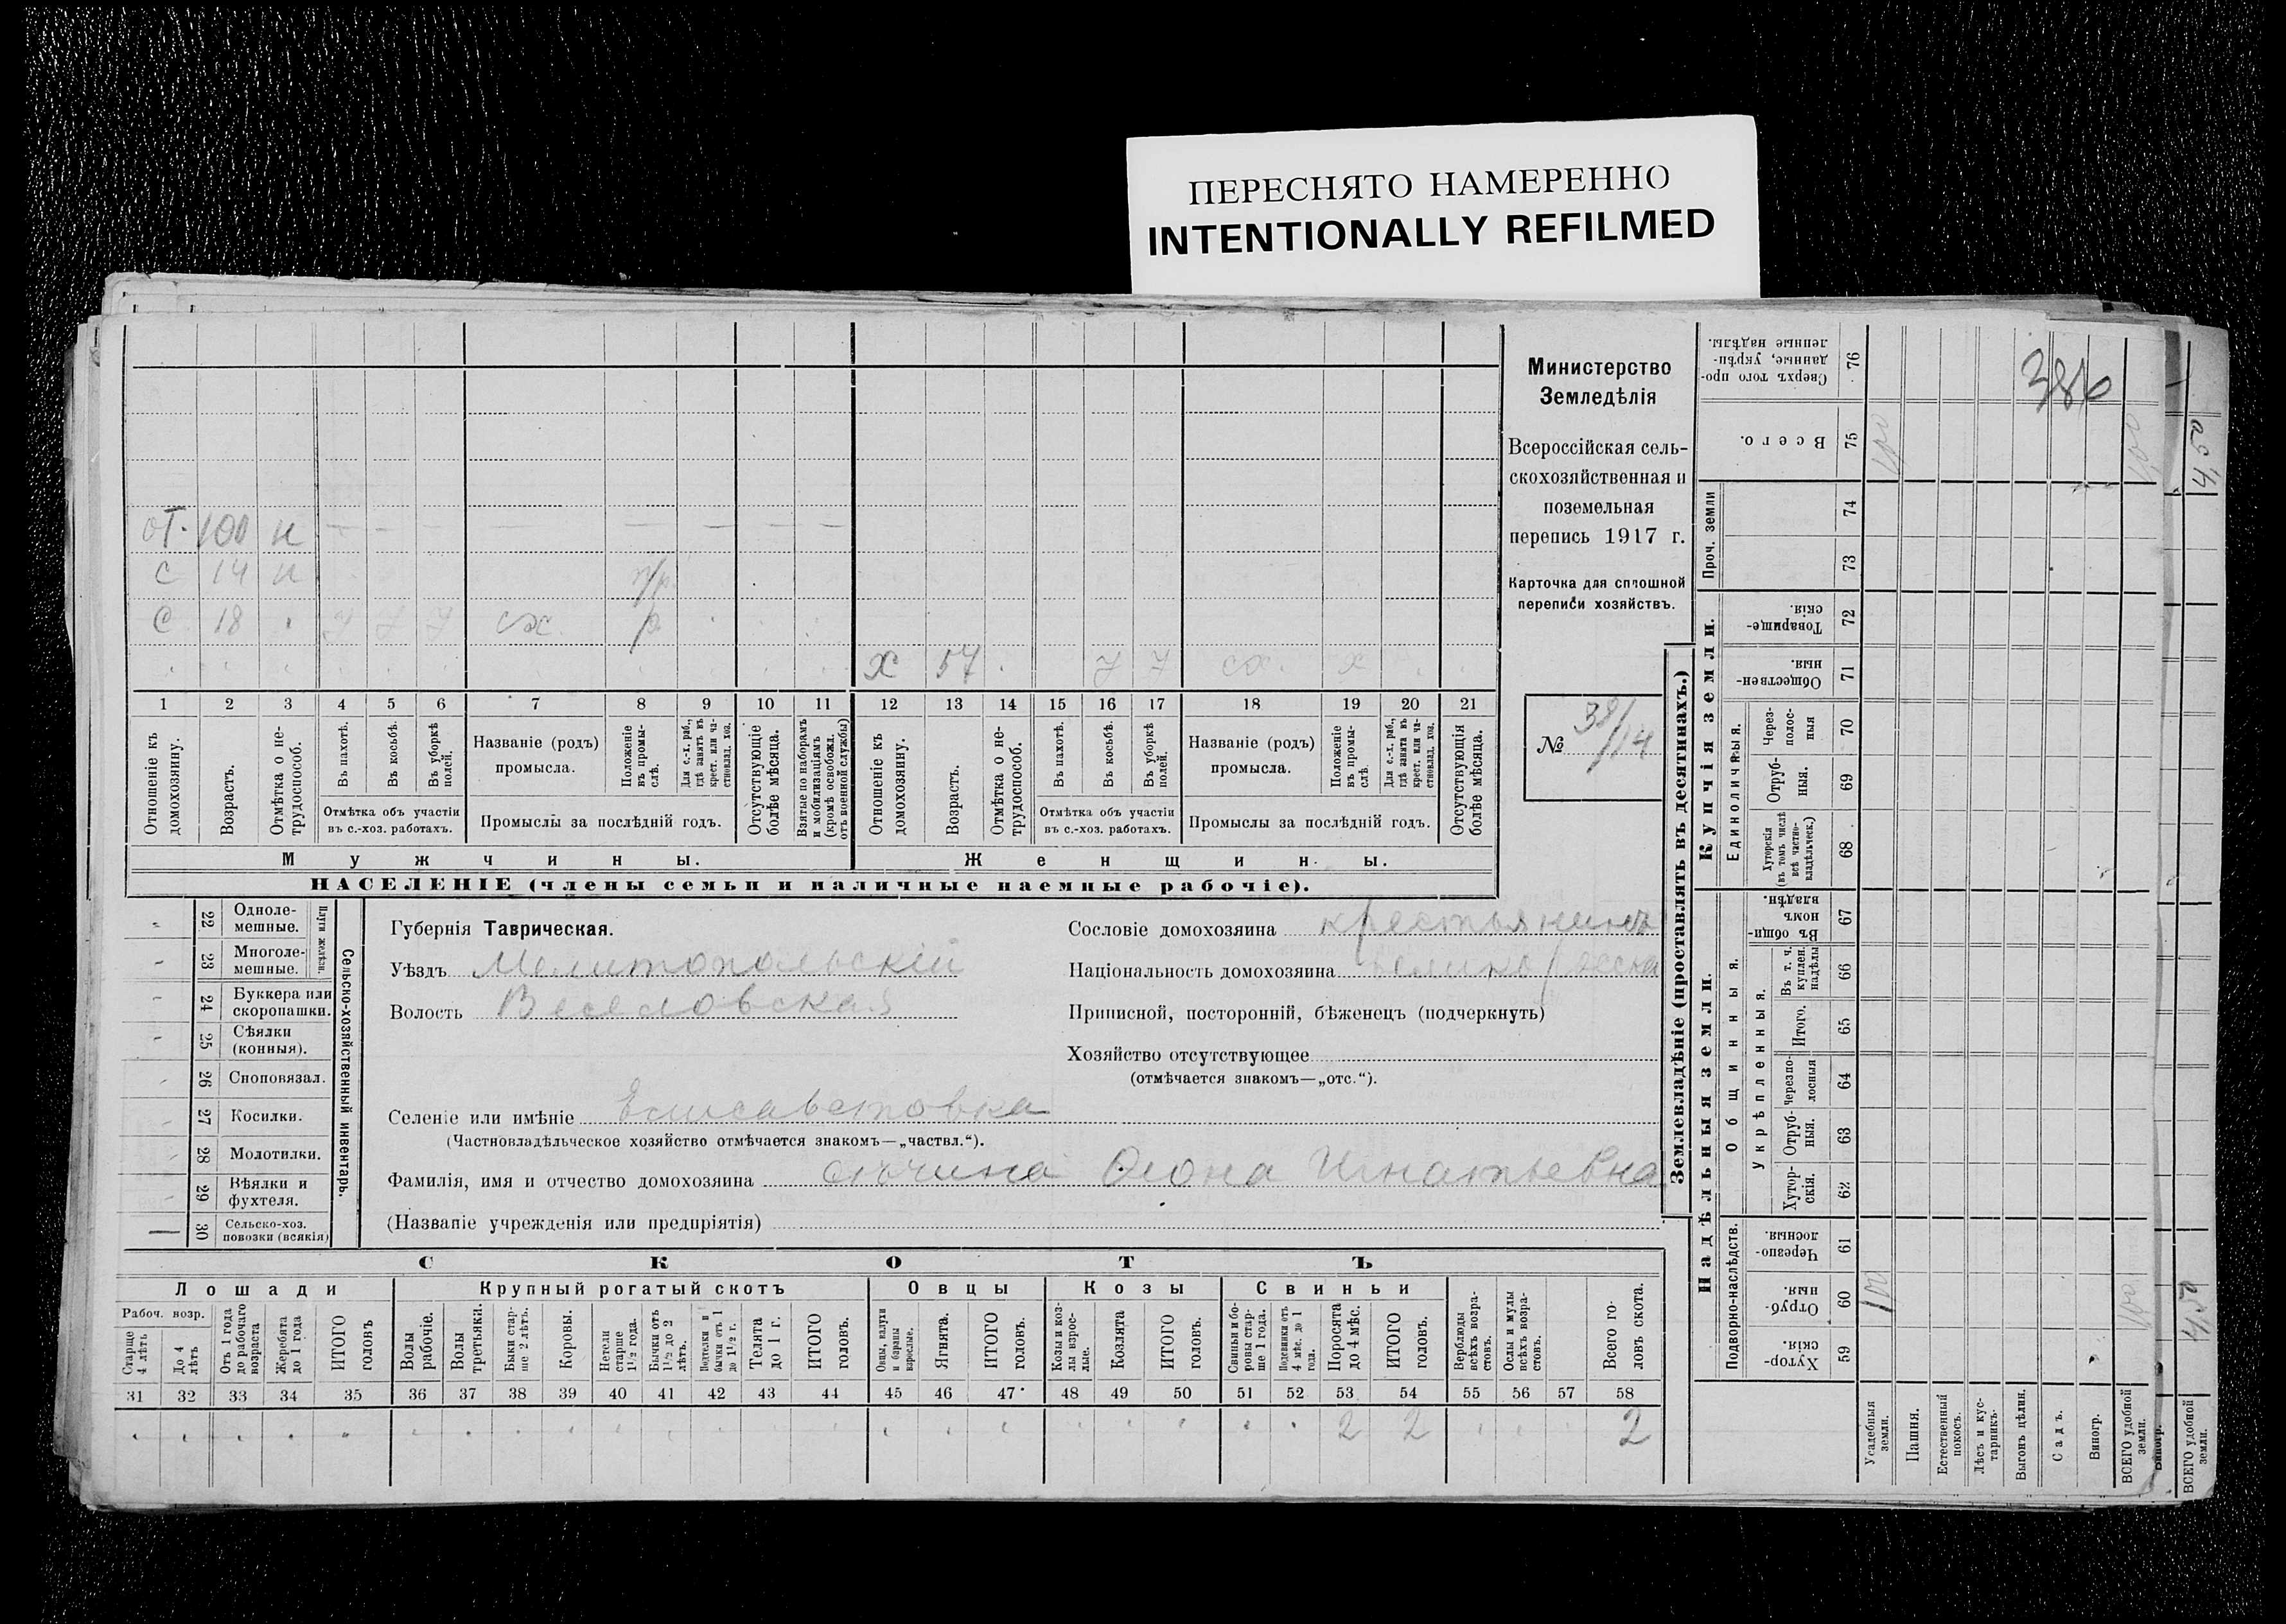 ПЕРЕСНЯТО НАМЕРЕННО
INTENTIONALLY REFILMED
Министерство
Земледѣлія
Всероссійская сель-
скохозяйственная и
поземельная
перепись 1917 г.
Карточка для сплошной
переписи хозяйствъ.
№ 38/14
386
от. 100 н
с 14 н п/р.
с 18 сх. р
х 57 сх. х
1 2 3 4 5 6 7 8 9 10 11 12 13 14 15 16 17 18 19 20 21
Отношеніе къ домохозяину.
Возрастъ.
Отмѣтка о не-трудоспособ.
Въ пахотѣ.
Въ косьбѣ.
Въ уборкѣ полей.
Отмѣтка объ участіи
въ с.-хоз. работахъ.
Названіе (родъ)
промысла.
Положеніе въ промы-слѣ.
Для с.-х. раб., гдѣ занятъ въ крест. или ча-стновлад. хоз.
Промыслы за послѣдній годъ.
Отсутствующіе болѣе мѣсяца.
Взятые по наборамъ и мобилизаціямъ (кромѣ освобожд. отъ военной службы)
Отношеніе къ домохозяину.
Возрастъ.
Отмѣтка о не-трудоспособ.
Въ пахотѣ.
Въ косьбѣ.
Въ уборкѣ полей.
Отмѣтка объ участіи
въ с.-хоз. работахъ.
Названіе (родъ)
промысла.
Положеніе въ промы-слѣ.
Для с.-х. раб., гдѣ занята въ крест. или ча-стновлад. хоз.
Промыслы за послѣдній годъ.
Отсутствующія болѣе мѣсяца.
Мужчины. Женщины.
НАСЕЛЕНІЕ (члены семьи и наличные наемные рабочіе).
22 Одноле-мешные.
23 Многоле-мешные.
Плуги желѣзн.
24 Буккера или скоропашки.
25 Сѣялки (конныя).
26 Сноповязал.
27 Косилки.
28 Молотилки.
29 Вѣялки и фухтеля.
30 Сельско-хоз. повозки (всякія)
Сельско-хозяйственный инвентарь.
Губернія Таврическая.
Уѣздъ Мелитопольскій
Волость Веселовская
Сословіе домохозяина крестьянинъ
Національность домохозяина
Приписной, посторонній, бѣженецъ (подчеркнуть)
Хозяйство отсутствующее
(отмѣчается знакомъ—„отс.“).
Селеніе или имѣніе Елисаветовка
(Частновладѣльческое хозяйство отмѣчается знакомъ—„частвл.“).
Фамилія, имя и отчество домохозяина Игнатьевна
(Названіе учрежденія или предпріятія)
СКОТЪ
Лошади Крупный рогатый скотъ Овцы Козы Свиньи
Рабоч. возр.
Старше 4 лѣтъ
До 4 лѣтъ
Отъ 1 года до рабочаго возраста
Жеребята до 1 года
ИТОГО головъ
Волы рабочіе.
Волы третьяки.
Быки стар-ше 2 лѣтъ.
Коровы.
Нетели старше 1½ года.
Бычки отъ 1½ до 2 лѣтъ.
Подтелки и бычки отъ 1 до 1½ г.
Телята до 1 г.
ИТОГО головъ.
Овцы, валухи и бараны взрослые.
Ягнята.
ИТОГО головъ.
Козы и коз-лы взрос-лые.
Козлята
ИТОГО головъ.
Свиньи и бо-ровы стар-ше 1 года.
Подсвинки отъ 4 мѣс. до 1 года.
Поросята до 4 мѣс.
ИТОГО головъ.
Верблюды всѣхъ возра-стовъ.
Ослы и мулы всѣхъ возра-стовъ.
Всего го-ловъ скота.
31 32 33 34 35 36 37 38 39 40 41 42 43 44 45 46 47 48 49 50 51 52 53 54 55 56 57 58
2 2 2
Землевладѣніе (проставлять въ десятинахъ.)
Купчія земли.
Надѣльныя земли.
Сверхъ того про-данные, укрѣп-ленные надѣлы. 76
Всего. 75
Проч. земли 74 73
Товарище-скія. 72
Обществен-ныя. 71
Единоличныя.
Через-полос-ныя 70
Отруб-ныя. 69
Хуторскія (въ томъ числѣ всѣ частно-владѣльческ.) 68
Общинныя.
Въ общин-номъ владѣн. 67
Укрѣпленныя.
Въ т. ч. куплен. надѣлы 66
Итого. 65
Черезпо-лосныя 64
Отруб-ныя. 63
Хутор-скія. 62
Подворно-наслѣдств.
Черезпо-лосныя. 61
Отруб-ныя. 60
Хутор-скія. 59
Усадебныя земли.
Пашня.
Естественный покосъ.
Лѣсъ и кус-тарникъ.
Выгонъ цѣлин.
Садъ.
Виногр.
ВСЕГО удобной земли.
Виногр.
ВСЕГО удобной земли.